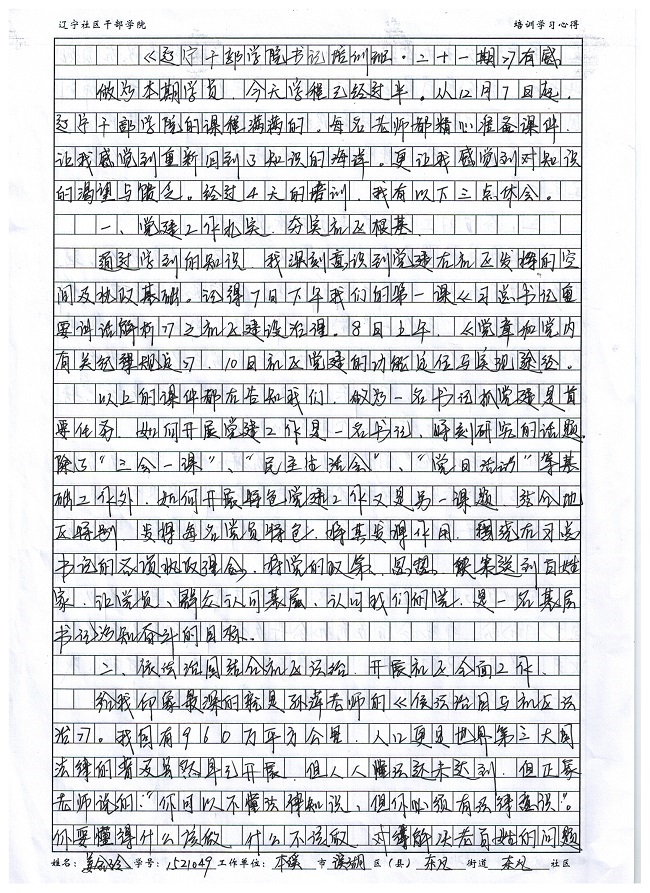 辽宁社区干部学院 培训学习心得
《辽宁干部学院书记培训班·二十一期》有感
做为本期学员，今天学程已经过半。从12月7日起，
辽宁干部学院的课程满满的。每名老师都精心准备课件，
让我感觉到重新回到了知识的海洋。更让我感觉到对知识
的渴望与馈乏。经过4天的培训，我有以下三点体会。
一、党建工作扎实，夯实社区根基
通过学到的知识，我深刻意识到党建在社区发挥的空
间及执政基础。记得7日下午我们的第一课《习总书记重
要讲话解析》之社区建设治理。8日上午，《党章和党内
有关纪律规定》，10日社区党建的功能定位与实现途经。
以上的课件都在告知我们，做为一名书记抓党建是首
要任务，如何开展党建工作是一名书记，时刻研究的话题
除了“三会一课”、“民主生活会”、“党日活动”等基
础工作外，如何开展特色党建工作又是另一课题，结合地
区特别，发挥每名党员特色，将其发挥作用，围绕在习总
书记的各项执政理念，将党的政策、思想、政策送到百姓
家，让党员、群众认可基层、认可我们的党，是一名基层
书记须知奋斗的目标。
二、依法治国结合社区法治，开展社区全面工作，
给我印象最深的就是孙萍老师的《依法治国与社区法
治》。我国有960万平方公里，人口更是世界第三大国
法律的普及虽然早已开展，但人人懂法还未达到，但正象
老师说的：“你可以不懂法律知识，但你必须有法律意识”。
你要懂得什么该做，什么不该做，对待解决老百姓的问题
姓名： 学号：1521049 工作单位：本溪 市 溪湖 区（县） 东兴 街道 东兴 社区